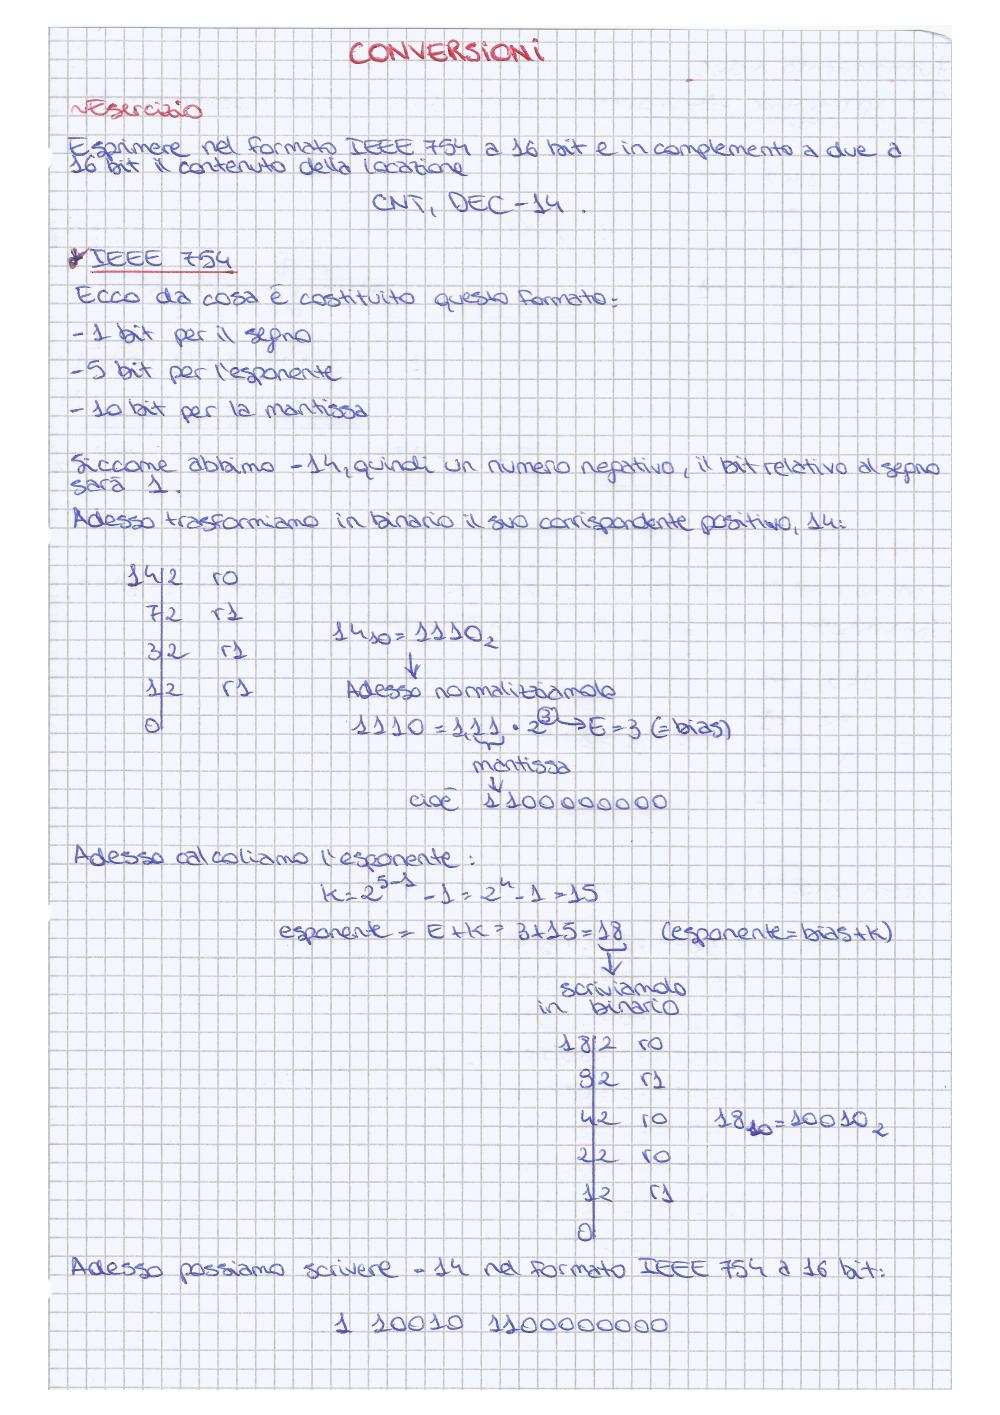 CONVERSIONI
~Esercizio
Esprimere nel formato IEEE 754 a 16 bit e in complemento a due a
16 bit il contenuto della locazione
CNT, DEC -14 .
IEEE 754
Ecco da cosa è costituito questo formato:
- 1 bit per il segno
- 5 bit per l'esponente
- 10 bit per la mantissa
Siccome abbimo -14, quindi un numero negativo, il bit relativo al segno
sarà 1.
Adesso trasformiamo in binario il suo corrispondente positivo, 14:
14|2 r0
7|2 r1
3|2 r1
1|2 r1
0
14₁₀ = 1110₂
↓
Adesso normalizziamolo
1110 = 1,11 · 2³ → E = 3 (= bias)
mantissa
↓
cioè 1100000000
Adesso calcoliamo l'esponente:
K = 2⁵⁻¹ - 1 = 2⁴ - 1 = 15
esponente = E+K = 3+15 = 18 (esponente = bias+K)
↓
scriviamolo
in binario
18|2 r0
9|2 r1
4|2 r0
2|2 r0
1|2 r1
0
18₁₀ = 10010₂
Adesso possiamo scrivere -14 nel formato IEEE 754 a 16 bit:
1 10010 1100000000